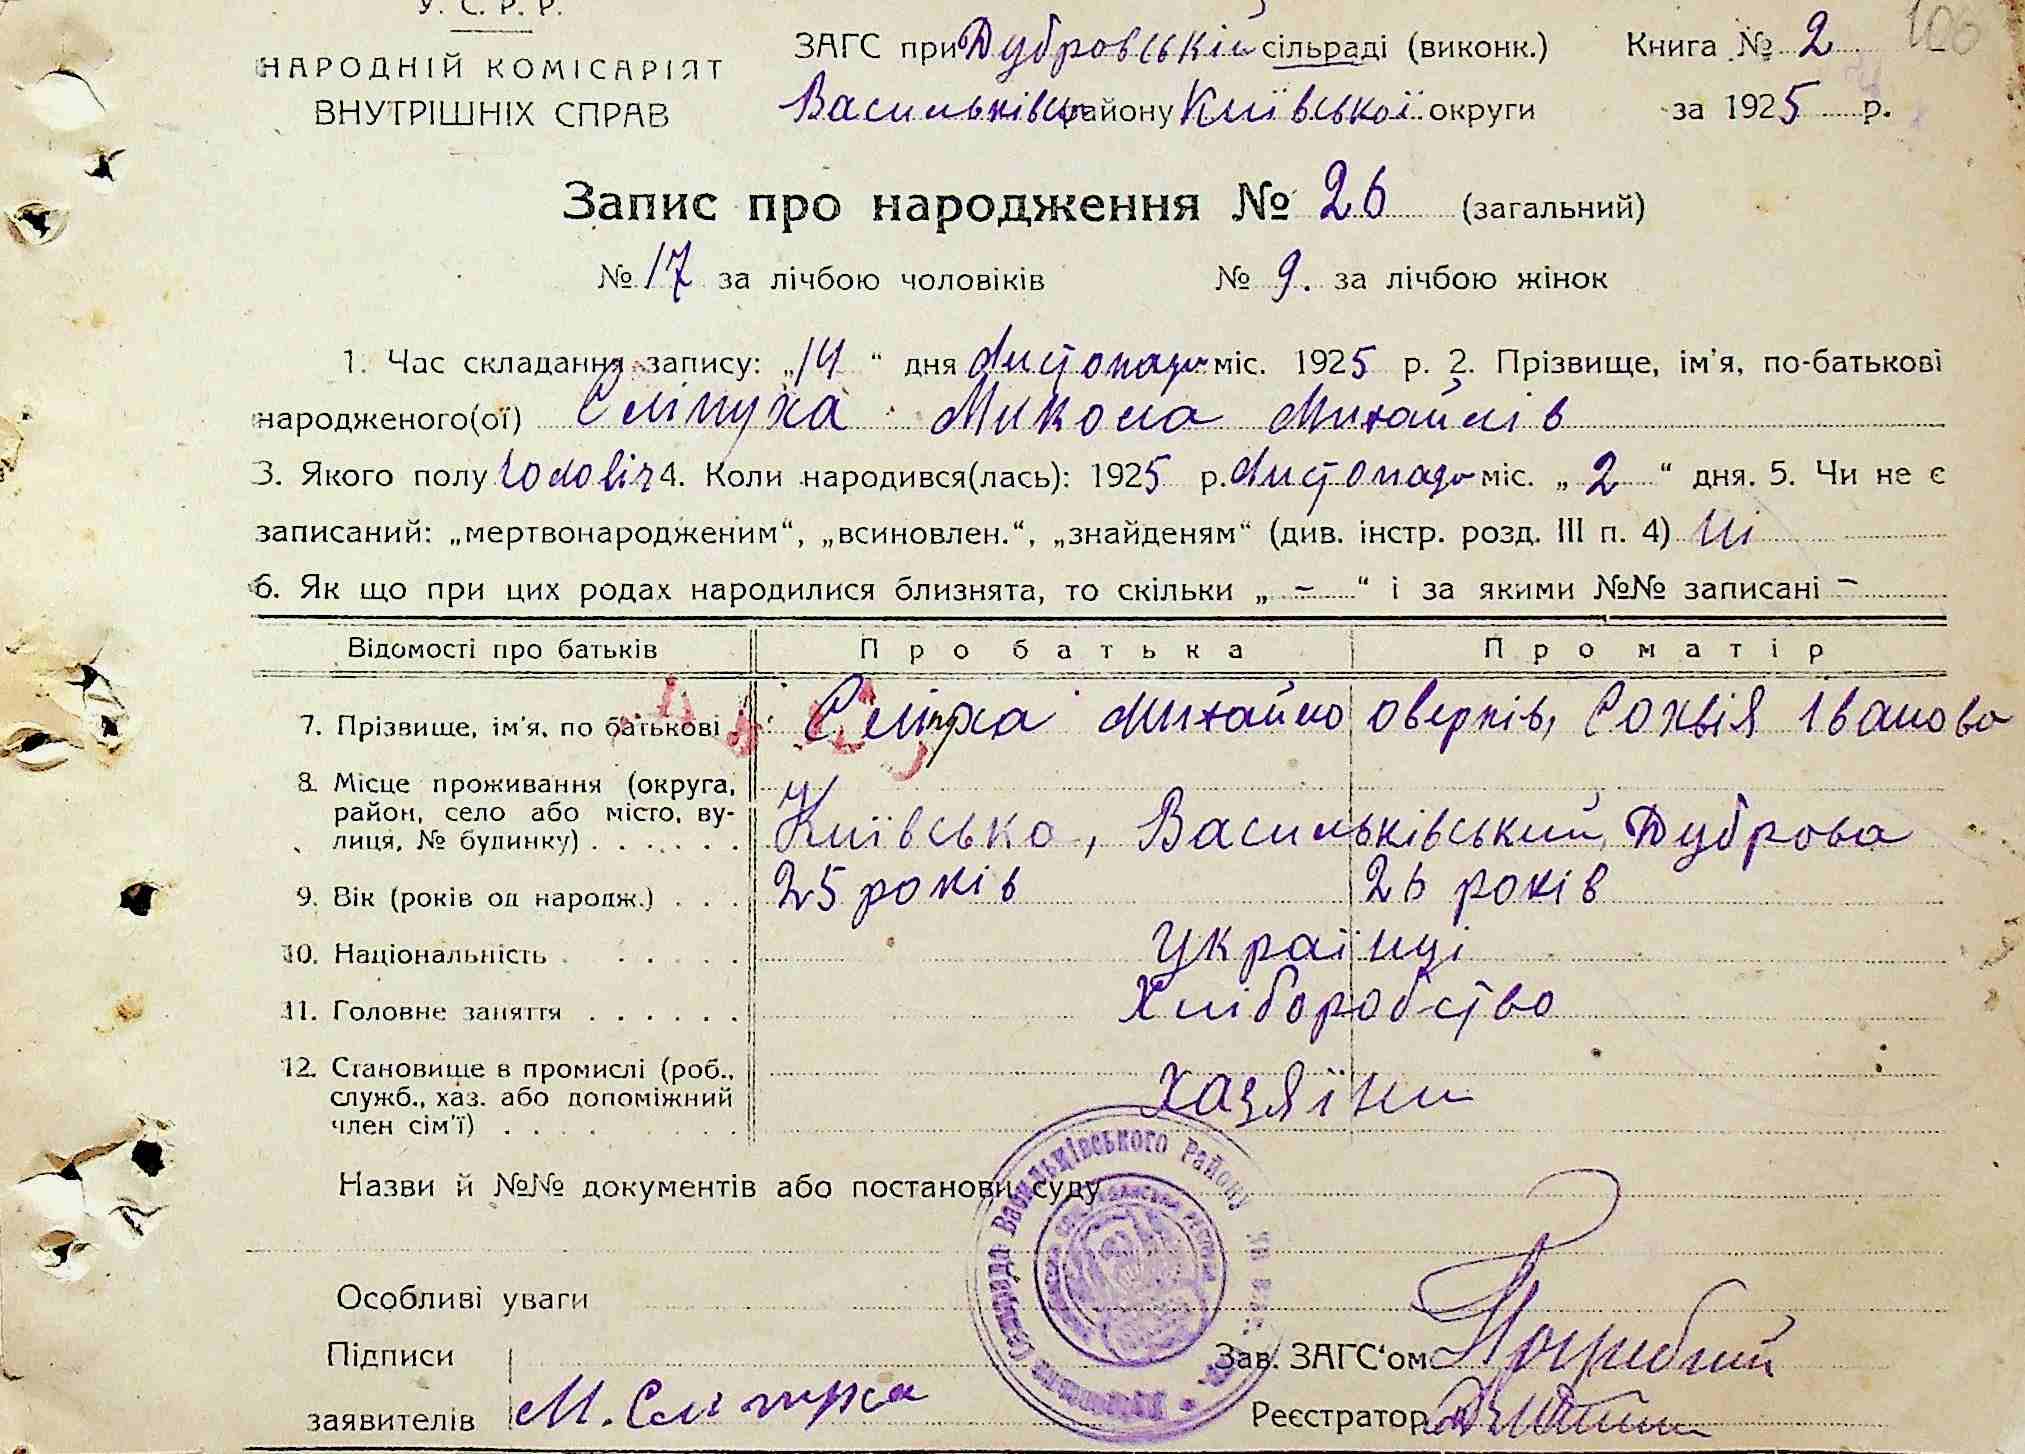 У. С. Р. Р.
НАРОДНІЙ КОМІСАРІЯТ
ВНУТРІШНІХ СПРАВ
ЗАГС при Дубровській сільраді (виконк.) Книга № 2 106
Васильківсь району Київської округи за 1925 р.
Запис про народження № 26 (загальний)
№ 17 за лічбою чоловіків № 9. за лічбою жінок
1. Час складання запису: „14“ дня Листопада міс. 1925 р. 2. Прізвище, ім'я, по-батькові
народженого(ої) Сліпуха Микола Михайлів
3. Якого полу Чоловіч 4. Коли народився(лась): 1925 р. Листопада міс. „2“ дня. 5. Чи не є
записаний: „мертвонародженим“, „всиновлен.“, „знайденям“ (див. інстр. розд. III п. 4) Ні
6. Як що при цих родах народилися близнята, то скільки „ – “ і за якими №№ записані –
Відомості про батьків Про батька Про матір
7. Прізвище, ім'я, по батькові Сліпуха Михайло Оверків, Сохвія Іванова
8. Місце проживання (округа,
район, село або місто, ву-
лиця, № будинку) . . . . . . Київсько, Васильківський, Дуброва
9. Вік (років од народж.) . . . 25 років 26 років
10. Національність . . . . . . Українці
11. Головне заняття . . . . . . Хліборобство
12. Становище в промислі (роб.,
служб., хаз. або допоміжний
член сім'ї) . . . . . . . . Хазяїни
Назви й №№ документів або постанови суду
Особливі уваги
Підписи
заявителів М. Сліпуха
Зав. ЗАГС'ом Погребний
Реєстратор
Сельрада Васильківського Району на Київ.